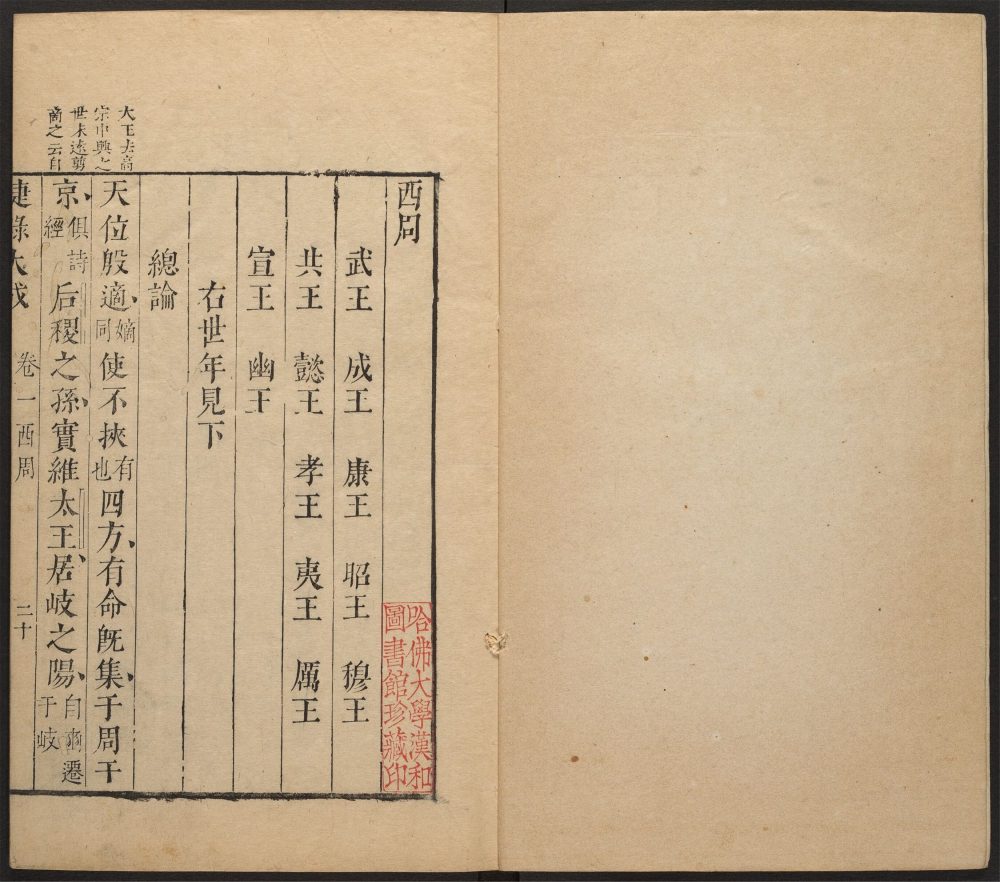 西周
武王 成王 康王 昭王 穆王
共王 懿王 孝王 夷王 厲王
宣王 幽王
右世年見下
總論
天位殷適嫡同使不挾有也四方、有命旣集、于周于
京、俱詩經后稷之孫、實維太王、居岐之陽、自豳遷于岐
大王去高
宗中興之
世未遠剪
商之云自
捷錄大成 卷一西周 二十
哈佛大學漢和
圖書館珍藏印